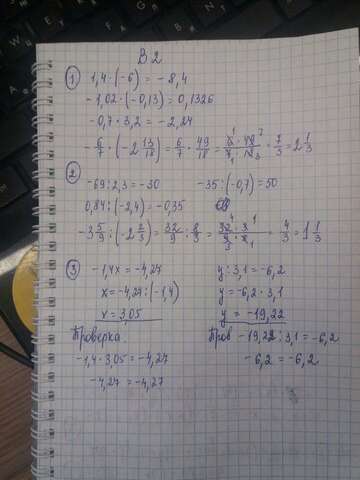 В 2
① 1,4 · (-6) = -8,4
-1,02 · (-0,13) = 0,1326
-0,7 · 3,2 = -2,24
-6/7 · (-2 13/18) = 6/7 · 49/18 = 7/3 = 2 1/3
② -69 : 2,3 = -30 -35 : (-0,7) = 50
0,84 : (-2,4) = -0,35
-3 5/9 · (-2 2/3) = 32/9 · 3/8 = 4/3 = 1 1/3
③ -1,4x = -4,27 y : 3,1 = -6,2
x = -4,27 : (-1,4) y = -6,2 · 3,1
x = 3,05 y = -19,22
Проверка: Пров -19,22 : 3,1 = -6,2
-1,4 · 3,05 = -4,27 -6,2 = -6,2
-4,27 = -4,27